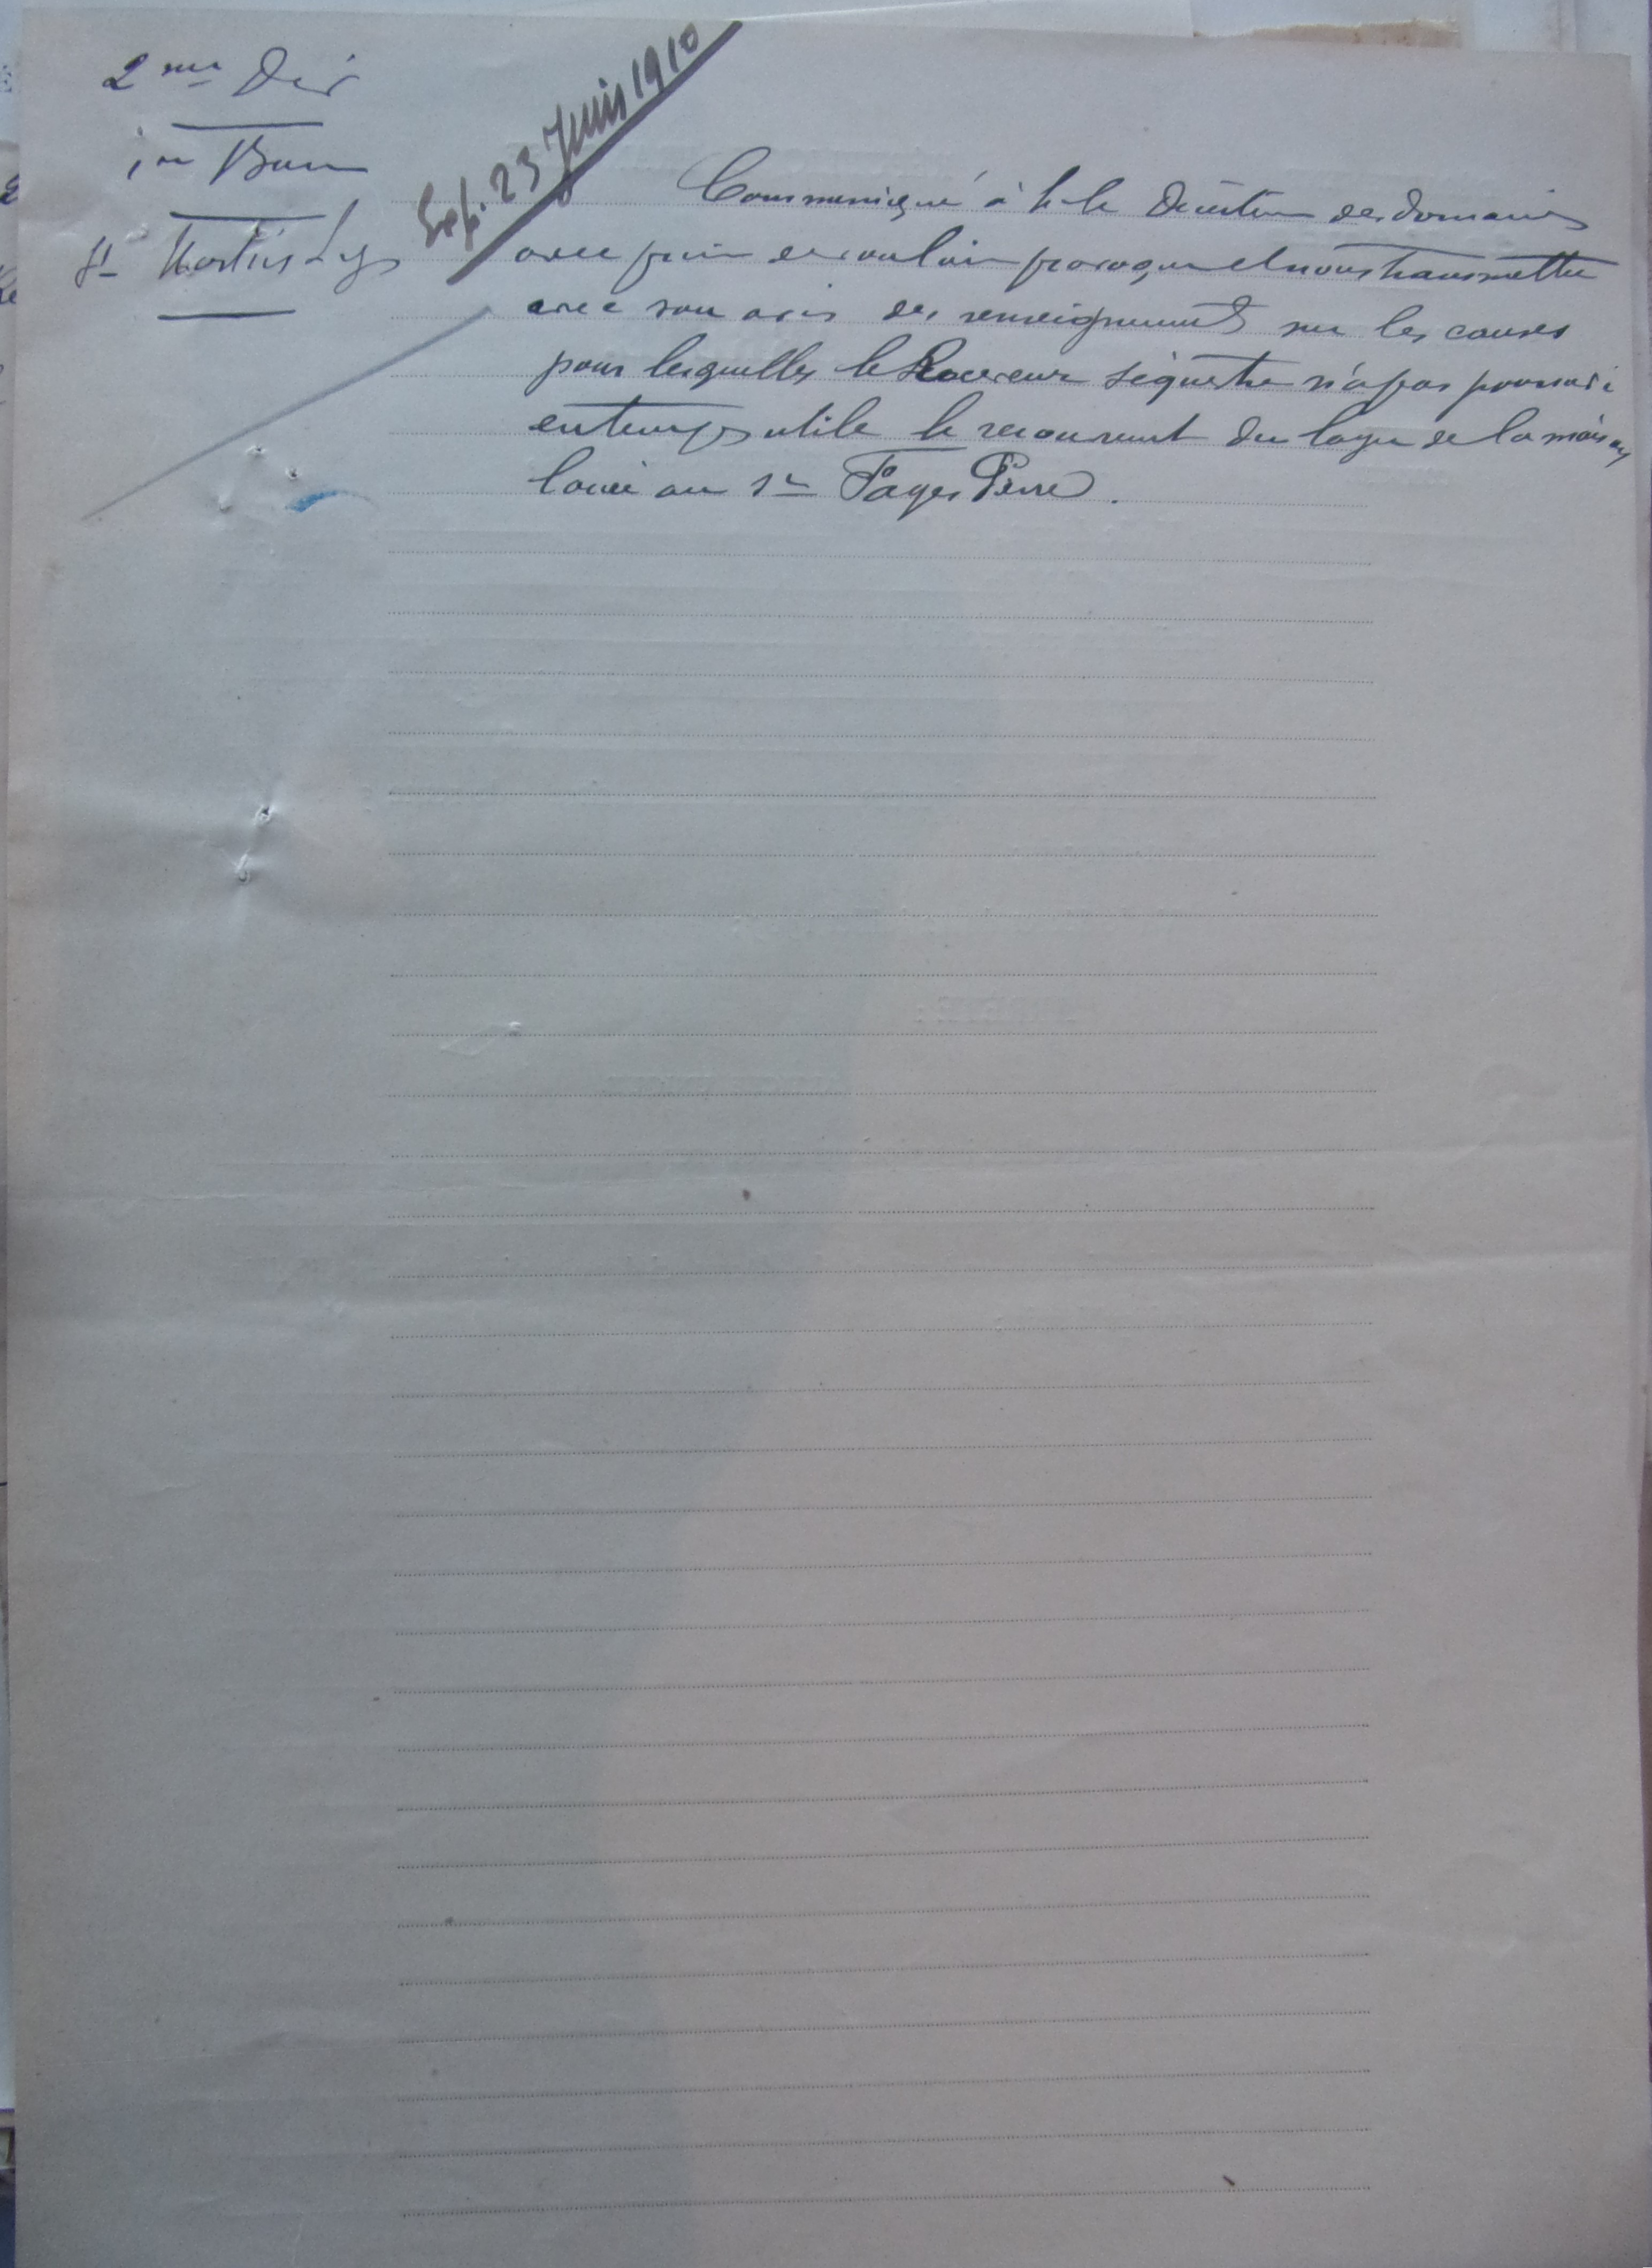 2me Div
1er Bur
St Martin Lys
Exp. 23 Juin 1910
Communiqué à M. le Directeur des domaines
avec prière de vouloir provoquer et nous transmettre
avec son avis des renseignements sur les causes
pour lesquelles le Receveur séquestre n'a pas poursuivi
en temps utile le recouvrement du loyer de la maison
louée au Sr Fages Pierre.